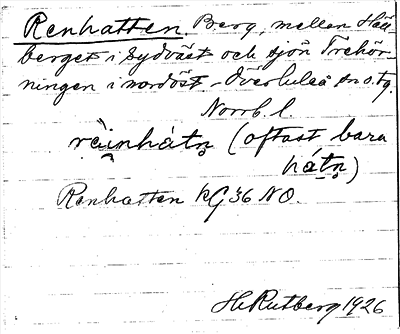 Renhatten. Berg, mellan Häll-
berget i sydväst och sjön Trehör-
ningen i nordöst - Överluleå sn o. tg.
Norrb. l.
ràinhátn̥ (oftast bara
hátn̥)
Renhatten kG 36 NO.
H. Rutberg 1926